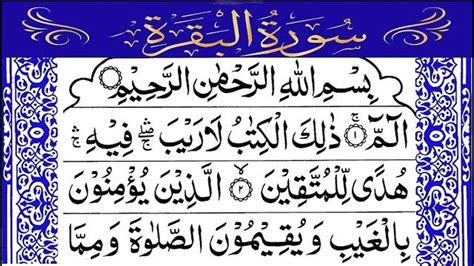 سُورَةُ الْبَقَرَةِ
بِسْمِ اللهِ الرَّحْمٰنِ الرَّحِيْمِ
الٓمّٓ ۚ﴿۱﴾ ذٰلِكَ الْكِتٰبُ لَا رَيْبَ ۛۖ فِيْهِ ۛۚ
هُدًى لِّلْمُتَّقِيْنَ ﴿۲﴾ الَّذِيْنَ يُؤْمِنُوْنَ
بِالْغَيْبِ وَيُقِيْمُوْنَ الصَّلٰوةَ وَمِمَّا